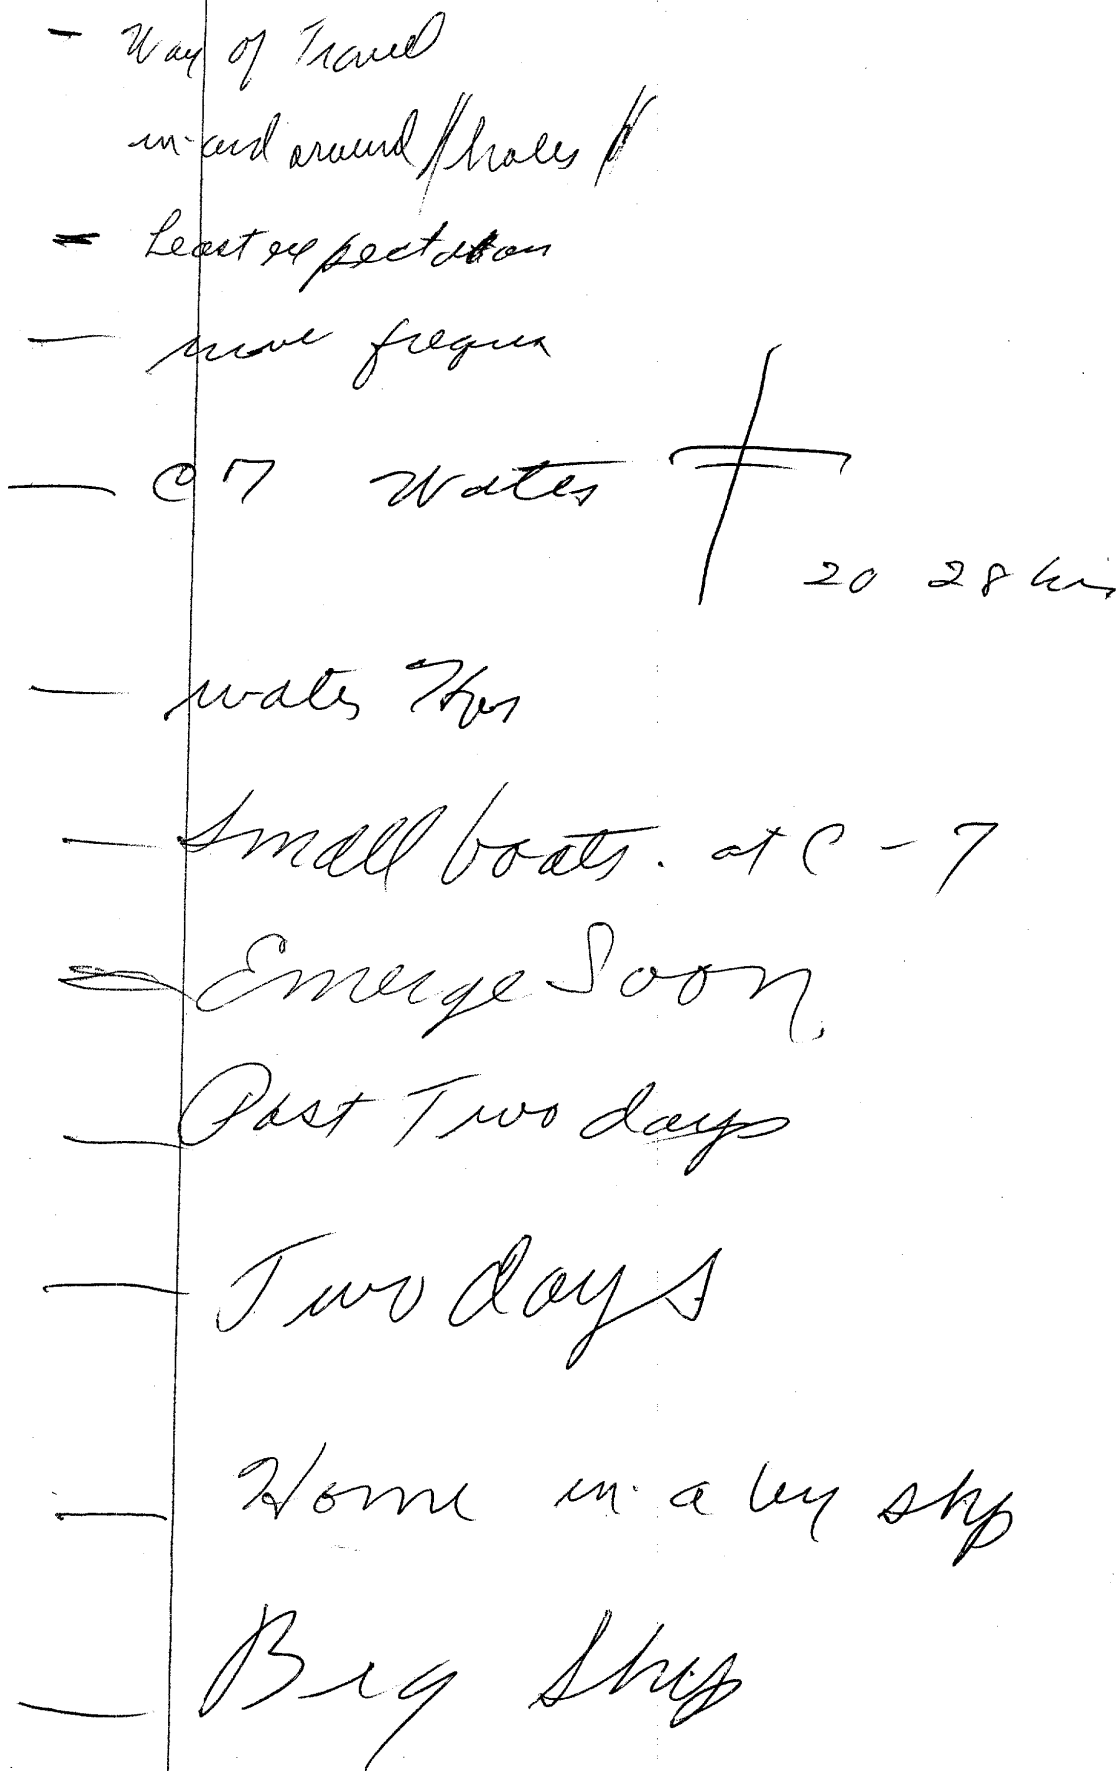 - Way of Travel
in and around // holes //
- Least expectation
- move frequ
- C 7 Water
20 28 km
- water
- Small boats. at C - 7
- Emerge Soon.
- Past Two days
- Two days
- Home in a big ship
- Big Ship